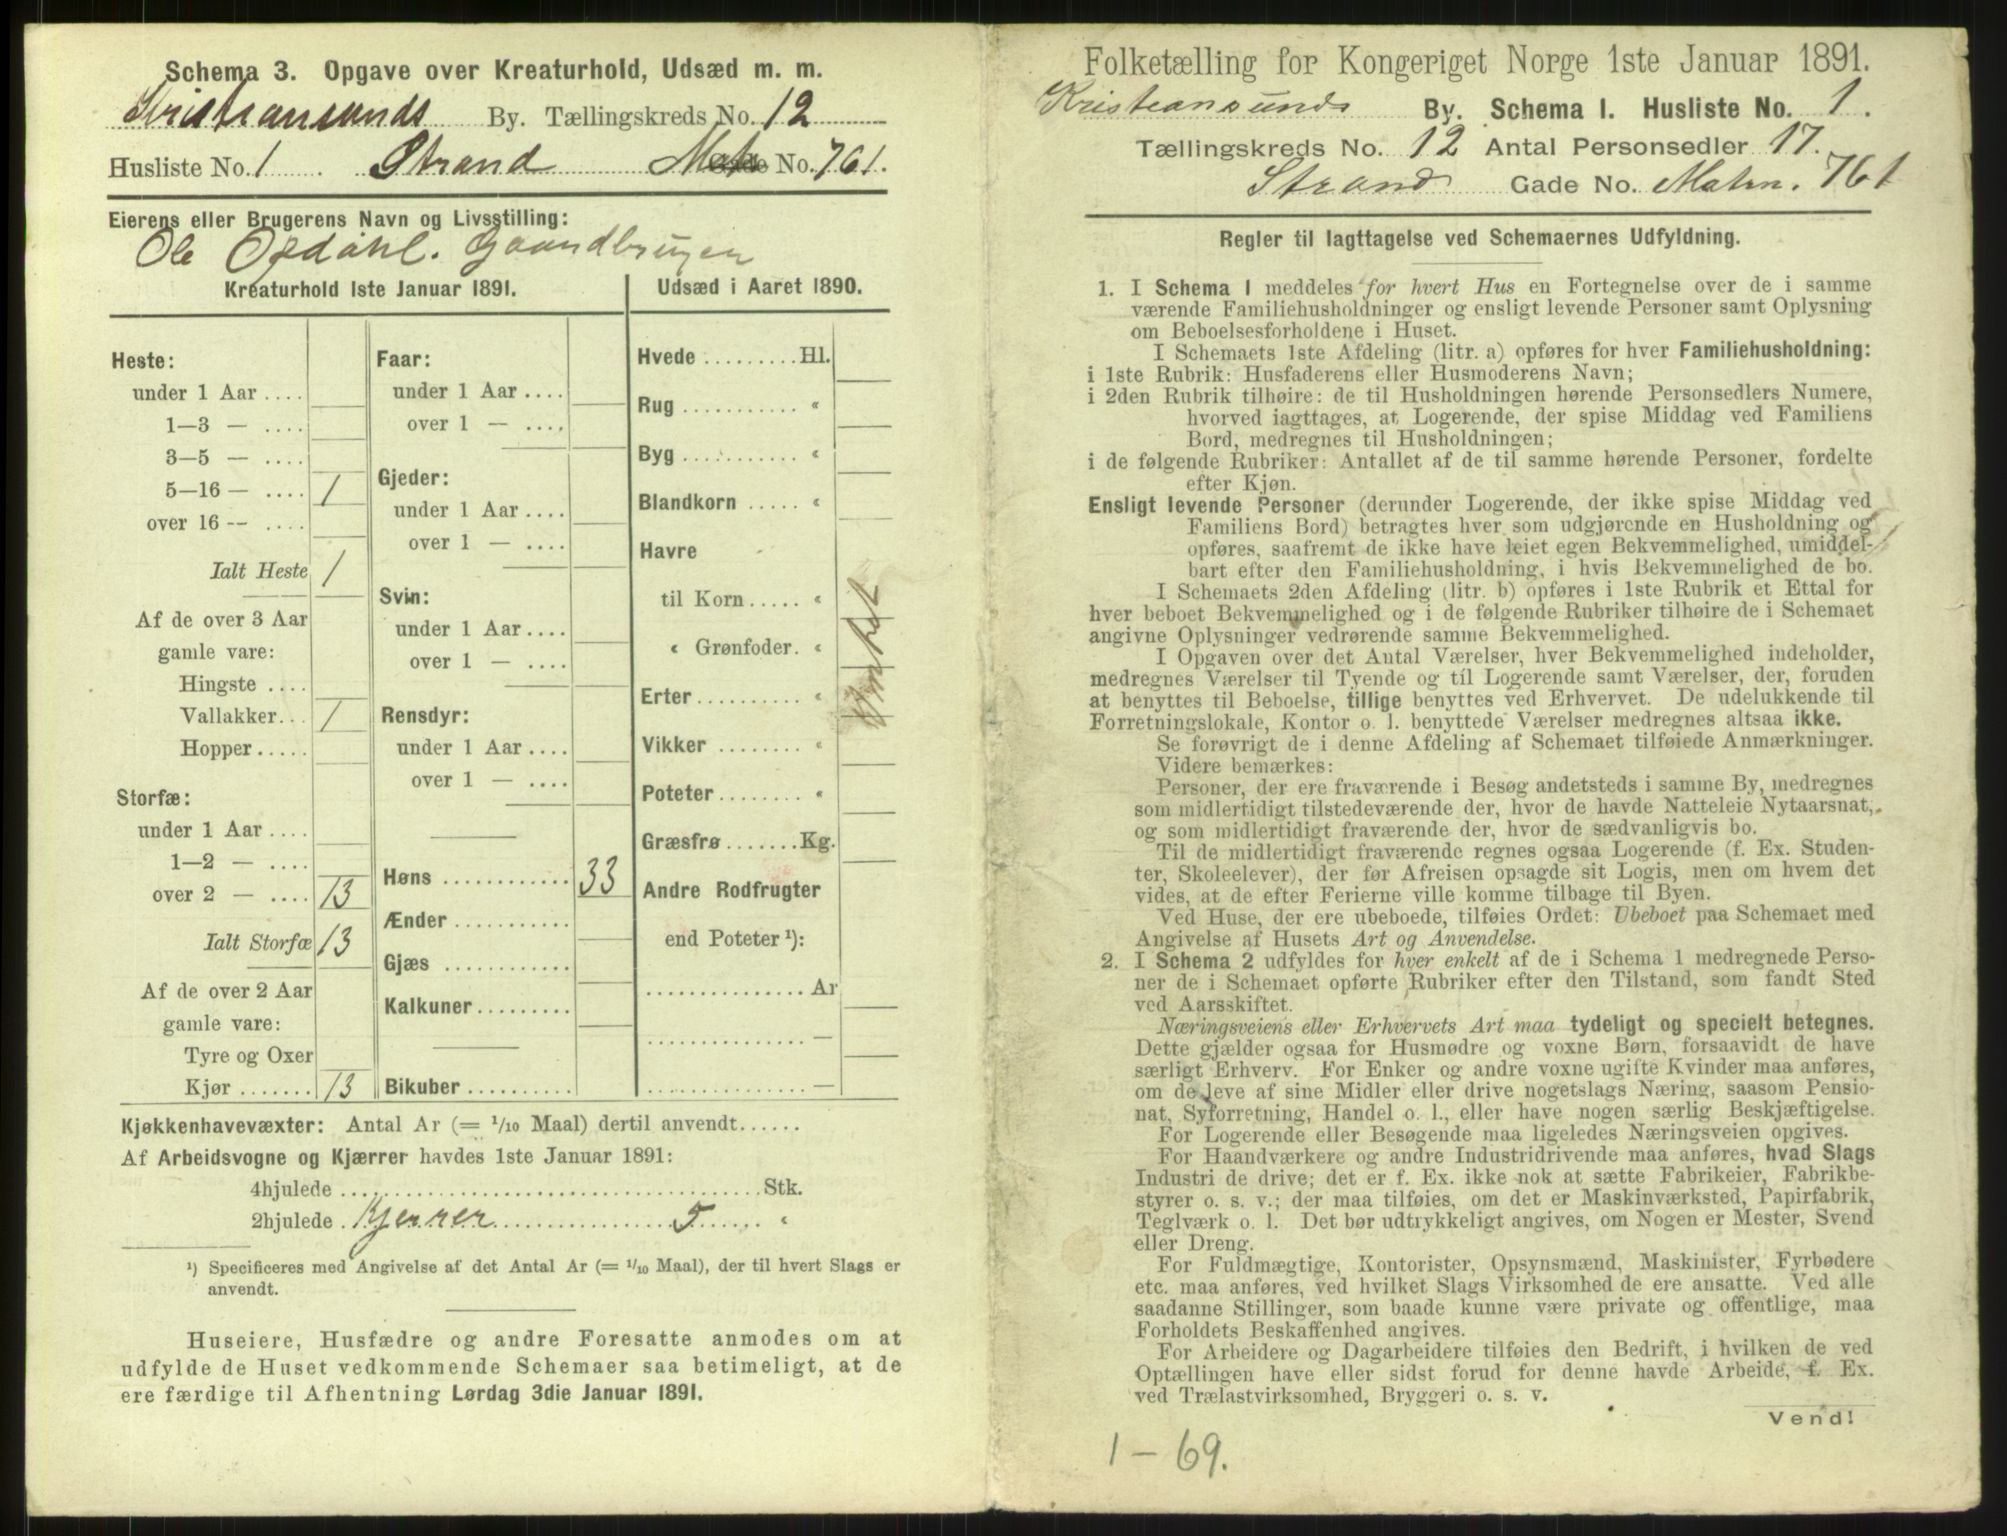 Schema 3. Opgave over Kreaturhold, Udsæd m. m.
Kristiansunds By. Tællingskreds No. 12
Husliste No. 1 . Strand Mat. No. 761.
Eierens eller Brugerens Navn og Livsstilling:
Ole Opdahl. Gaardbruger
Kreaturhold 1ste Januar 1891.
Heste:
under 1 Aar ....
1—3 — ....
3—5 — ....
5—16 — .... 1
over 16 -- ....
Ialt Heste 1
Af de over 3 Aar
gamle vare:
Hingste ....
Vallakker... 1
Hopper.....
Storfæ:
under 1 Aar ....
1—2 — ....
over 2 — .... 13
Ialt Storfæ 13
Af de over 2 Aar
gamle vare:
Tyre og Oxer
Kjør ....... 13
Faar:
under 1 Aar ....
over 1 — ....
Gjeder:
under 1 Aar ....
over 1 — ....
Svin:
under 1 Aar ....
over 1 — ....
Rensdyr:
under 1 Aar ....
over 1 — ....
Høns ............ 33
Ænder ...........
Gjæs ............
Kalkuner.........
Bikuber ..........
Udsæd i Aaret 1890.
Hvede .........Hl.
Rug ........... «
Byg ........... «
Blandkorn ..... «
Havre
til Korn ..... «
« Grønfoder. «
Erter ......... «
Vikker ........ «
Poteter ........ «
Græsfrø .......Kg.
Andre Rodfrugter
end Poteter ¹):
............... Ar
............... —
............... —
Kjøkkenhavevæxter: Antal Ar (= 1/10 Maal) dertil anvendt......
Af Arbeidsvogne og Kjærrer havdes 1ste Januar 1891:
4hjulede ........................................Stk.
2hjulede . Kjerrer 5 «
¹) Specificeres med Angivelse af det Antal Ar (= 1/10 Maal), der til hvert Slags er
anvendt.
Huseiere, Husfædre og andre Foresatte anmodes om at
udfylde de Huset vedkommende Schemaer saa betimeligt, at de
ere færdige til Afhentning Lørdag 3die Januar 1891.
Folketælling for Kongeriget Norge 1ste Januar 1891.
Kristiansunds By. Schema I. Husliste No. 1.
Tællingskreds No. 12 Antal Personsedler 17.
Strand Gade No. Matrn. 761
Regler til Iagttagelse ved Schemaernes Udfyldning.
1. I Schema 1 meddeles for hvert Hus en Fortegnelse over de i samme
værende Familiehusholdninger og ensligt levende Personer samt Oplysning
om Beboelsesforholdene i Huset.
I Schemaets 1ste Afdeling (litr. a) opføres for hver Familiehusholdning:
i 1ste Rubrik: Husfaderens eller Husmoderens Navn;
i 2den Rubrik tilhøire: de til Husholdningen hørende Personsedlers Numere,
hvorved iagttages, at Logerende, der spise Middag ved Familiens
Bord, medregnes til Husholdningen;
i de følgende Rubriker: Antallet af de til samme hørende Personer, fordelte
efter Kjøn.
Ensligt levende Personer (derunder Logerende, der ikke spise Middag ved
Familiens Bord) betragtes hver som udgjørende en Husholdning og
opføres, saafremt de ikke have leiet egen Bekvemmelighed, umiddel-
bart efter den Familiehusholdning, i hvis Bekvemmelighed de bo.
I Schemaets 2den Afdeling (litr. b) opføres i 1ste Rubrik et Ettal for
hver beboet Bekvemmelighed og i de følgende Rubriker tilhøire de i Schemaet
angivne Oplysninger vedrørende samme Bekvemmelighed.
I Opgaven over det Antal Værelser, hver Bekvemmelighed indeholder,
medregnes Værelser til Tyende og til Logerende samt Værelser, der, foruden
at benyttes til Beboelse, tillige benyttes ved Erhvervet. De udelukkende til
Forretningslokale, Kontor o. l. benyttede Værelser medregnes altsaa ikke.
Se forøvrigt de i denne Afdeling af Schemaet tilføiede Anmærkninger.
Videre bemærkes:
Personer, der ere fraværende i Besøg andetsteds i samme By, medregnes
som midlertidigt tilstedeværende der, hvor de havde Natteleie Nytaarsnat,
og som midlertidigt fraværende der, hvor de sædvanligvis bo.
Til de midlertidigt fraværende regnes ogsaa Logerende (f. Ex. Studen-
ter, Skoleelever), der før Afreisen opsagde sit Logis, men om hvem det
vides, at de efter Ferierne ville komme tilbage til Byen.
Ved Huse, der ere ubeboede, tilføies Ordet: Ubeboet paa Schemaet med
Angivelse af Husets Art og Anvendelse.
2. I Schema 2 udfyldes for hver enkelt af de i Schema 1 medregnede Perso-
ner de i Schemaet opførte Rubriker efter den Tilstand, som fandt Sted
ved Aarsskiftet.
Næringsveiens eller Erhvervets Art maa tydeligt og specielt betegnes.
Dette gjælder ogsaa for Husmødre og voxne Børn, forsaavidt de have
særligt Erhverv. For Enker og andre voxne ugifte Kvinder maa anføres,
om de leve af sine Midler eller drive nogetslags Næring, saasom Pensio-
nat, Syforretning, Handel o. l., eller have nogen særlig Beskjæftigelse.
For Logerende eller Besøgende maa ligeledes Næringsveien opgives.
For Haandværkere og andre Industridrivende maa anføres, hvad Slags
Industri de drive; det er f. Ex. ikke nok at sætte Fabrikeier, Fabrikbe-
styrer o. s. v.; der maa tilføies, om det er Maskinværksted, Papirfabrik,
Teglværk o. l. Det bør udtrykkeligt angives, om Nogen er Mester, Svend
eller Dreng.
For Fuldmægtige, Kontorister, Opsynsmænd, Maskinister, Fyrbødere
etc. maa anføres, ved hvilket Slags Virksomhed de ere ansatte. Ved alle
saadanne Stillinger, som baade kunne være private og offentlige, maa
Forholdets Beskaffenhed angives.
For Arbeidere og Dagarbeidere tilføies den Bedrift, i hvilken de ved
Optællingen have eller sidst forud for denne havde Arbeide, f. Ex.
ved Trælastvirksomhed, Bryggeri o. s. v.
Vend!
1 — 69.